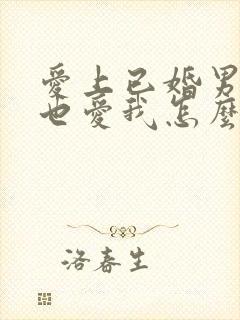 愛上已婚男
也愛我怎麼
洛春生